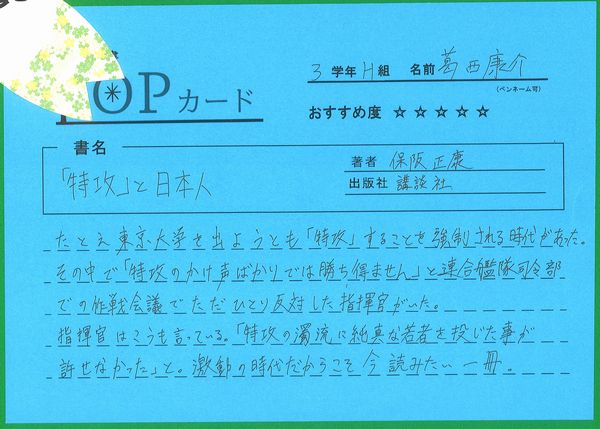 POPカード
3学年H組 名前 葛西康介
(ペンネーム可)
おすすめ度 ☆☆☆☆☆
書名
「特攻」と日本人
著者 保阪正康
出版社 講談社
たとえ東京大学を出ようとも「特攻」することを強制される時代があった。
その中で「特攻のかけ声ばかりでは勝ち得ません」と連合艦隊司令部
での作戦会議でただひとり反対した指揮官がいた。
指揮官はこうも言っている。「特攻の濁流に純真な若者を投じた事が
許せなかった」と。激動の時代だからこそ今読みたい一冊。